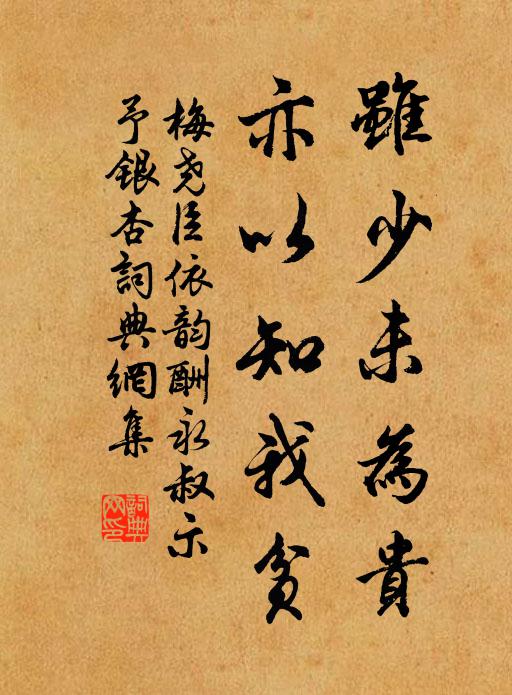 雖少未為貴
亦以知我貧
梅尧臣依韵酬永叔示
予銀杏詞典網集
詞典
网印